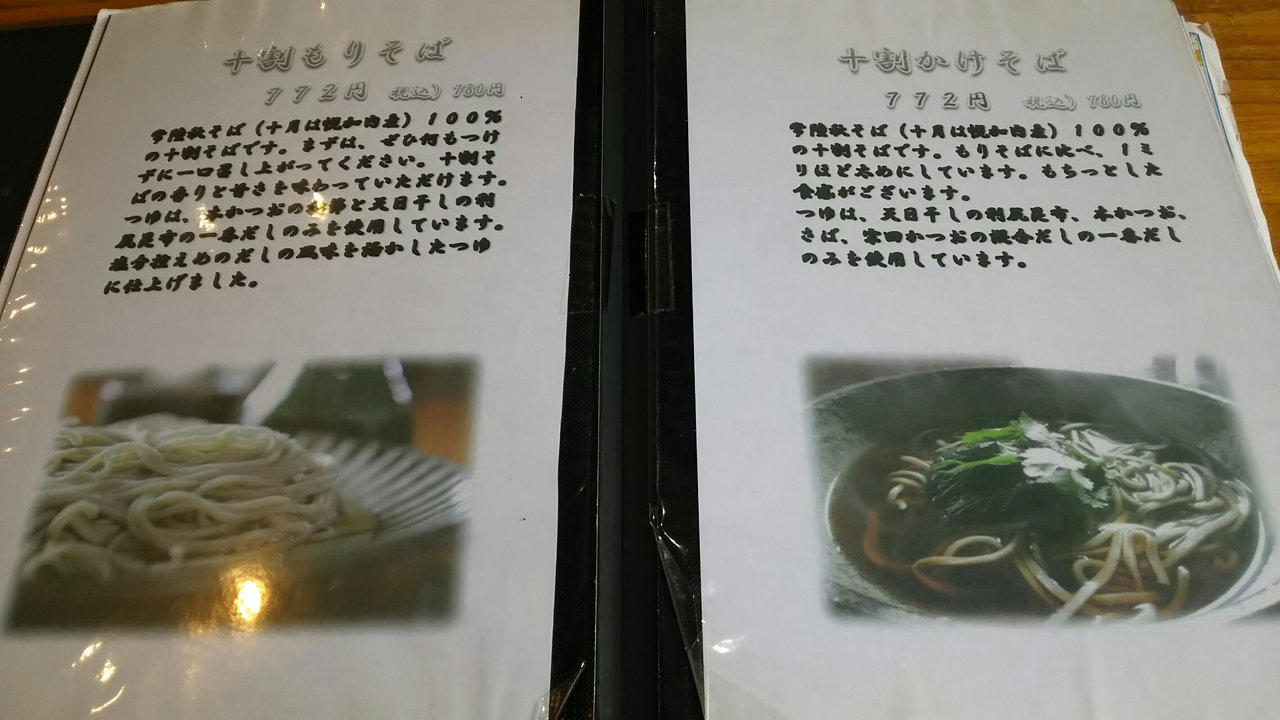 十割もりそば
772円 税込) 780円
常陸秋そば(十月は幌加内産)100%
の十割そばです。まずは、ぜひ何もつけ
ずに一口召し上がってください。十割そ
ばの香りと甘さを味わっていただけます。
つゆは、本かつおの節と天日干しの利
尻昆布の一番だしのみを使用しています。
塩分控えめのだしの風味を活かしたつゆ
に仕上げました。
十割かけそば
772円 税込) 780円
常陸秋そば(十月は幌加内産)100%
の十割そばです。もりそばに比べ、1ミ
リほど太めにしています。もちっとした
食感がございます。
つゆは、天日干しの利尻昆布、本かつお、
さば、宗田かつおの混合だしの一番だし
のみを使用しています。